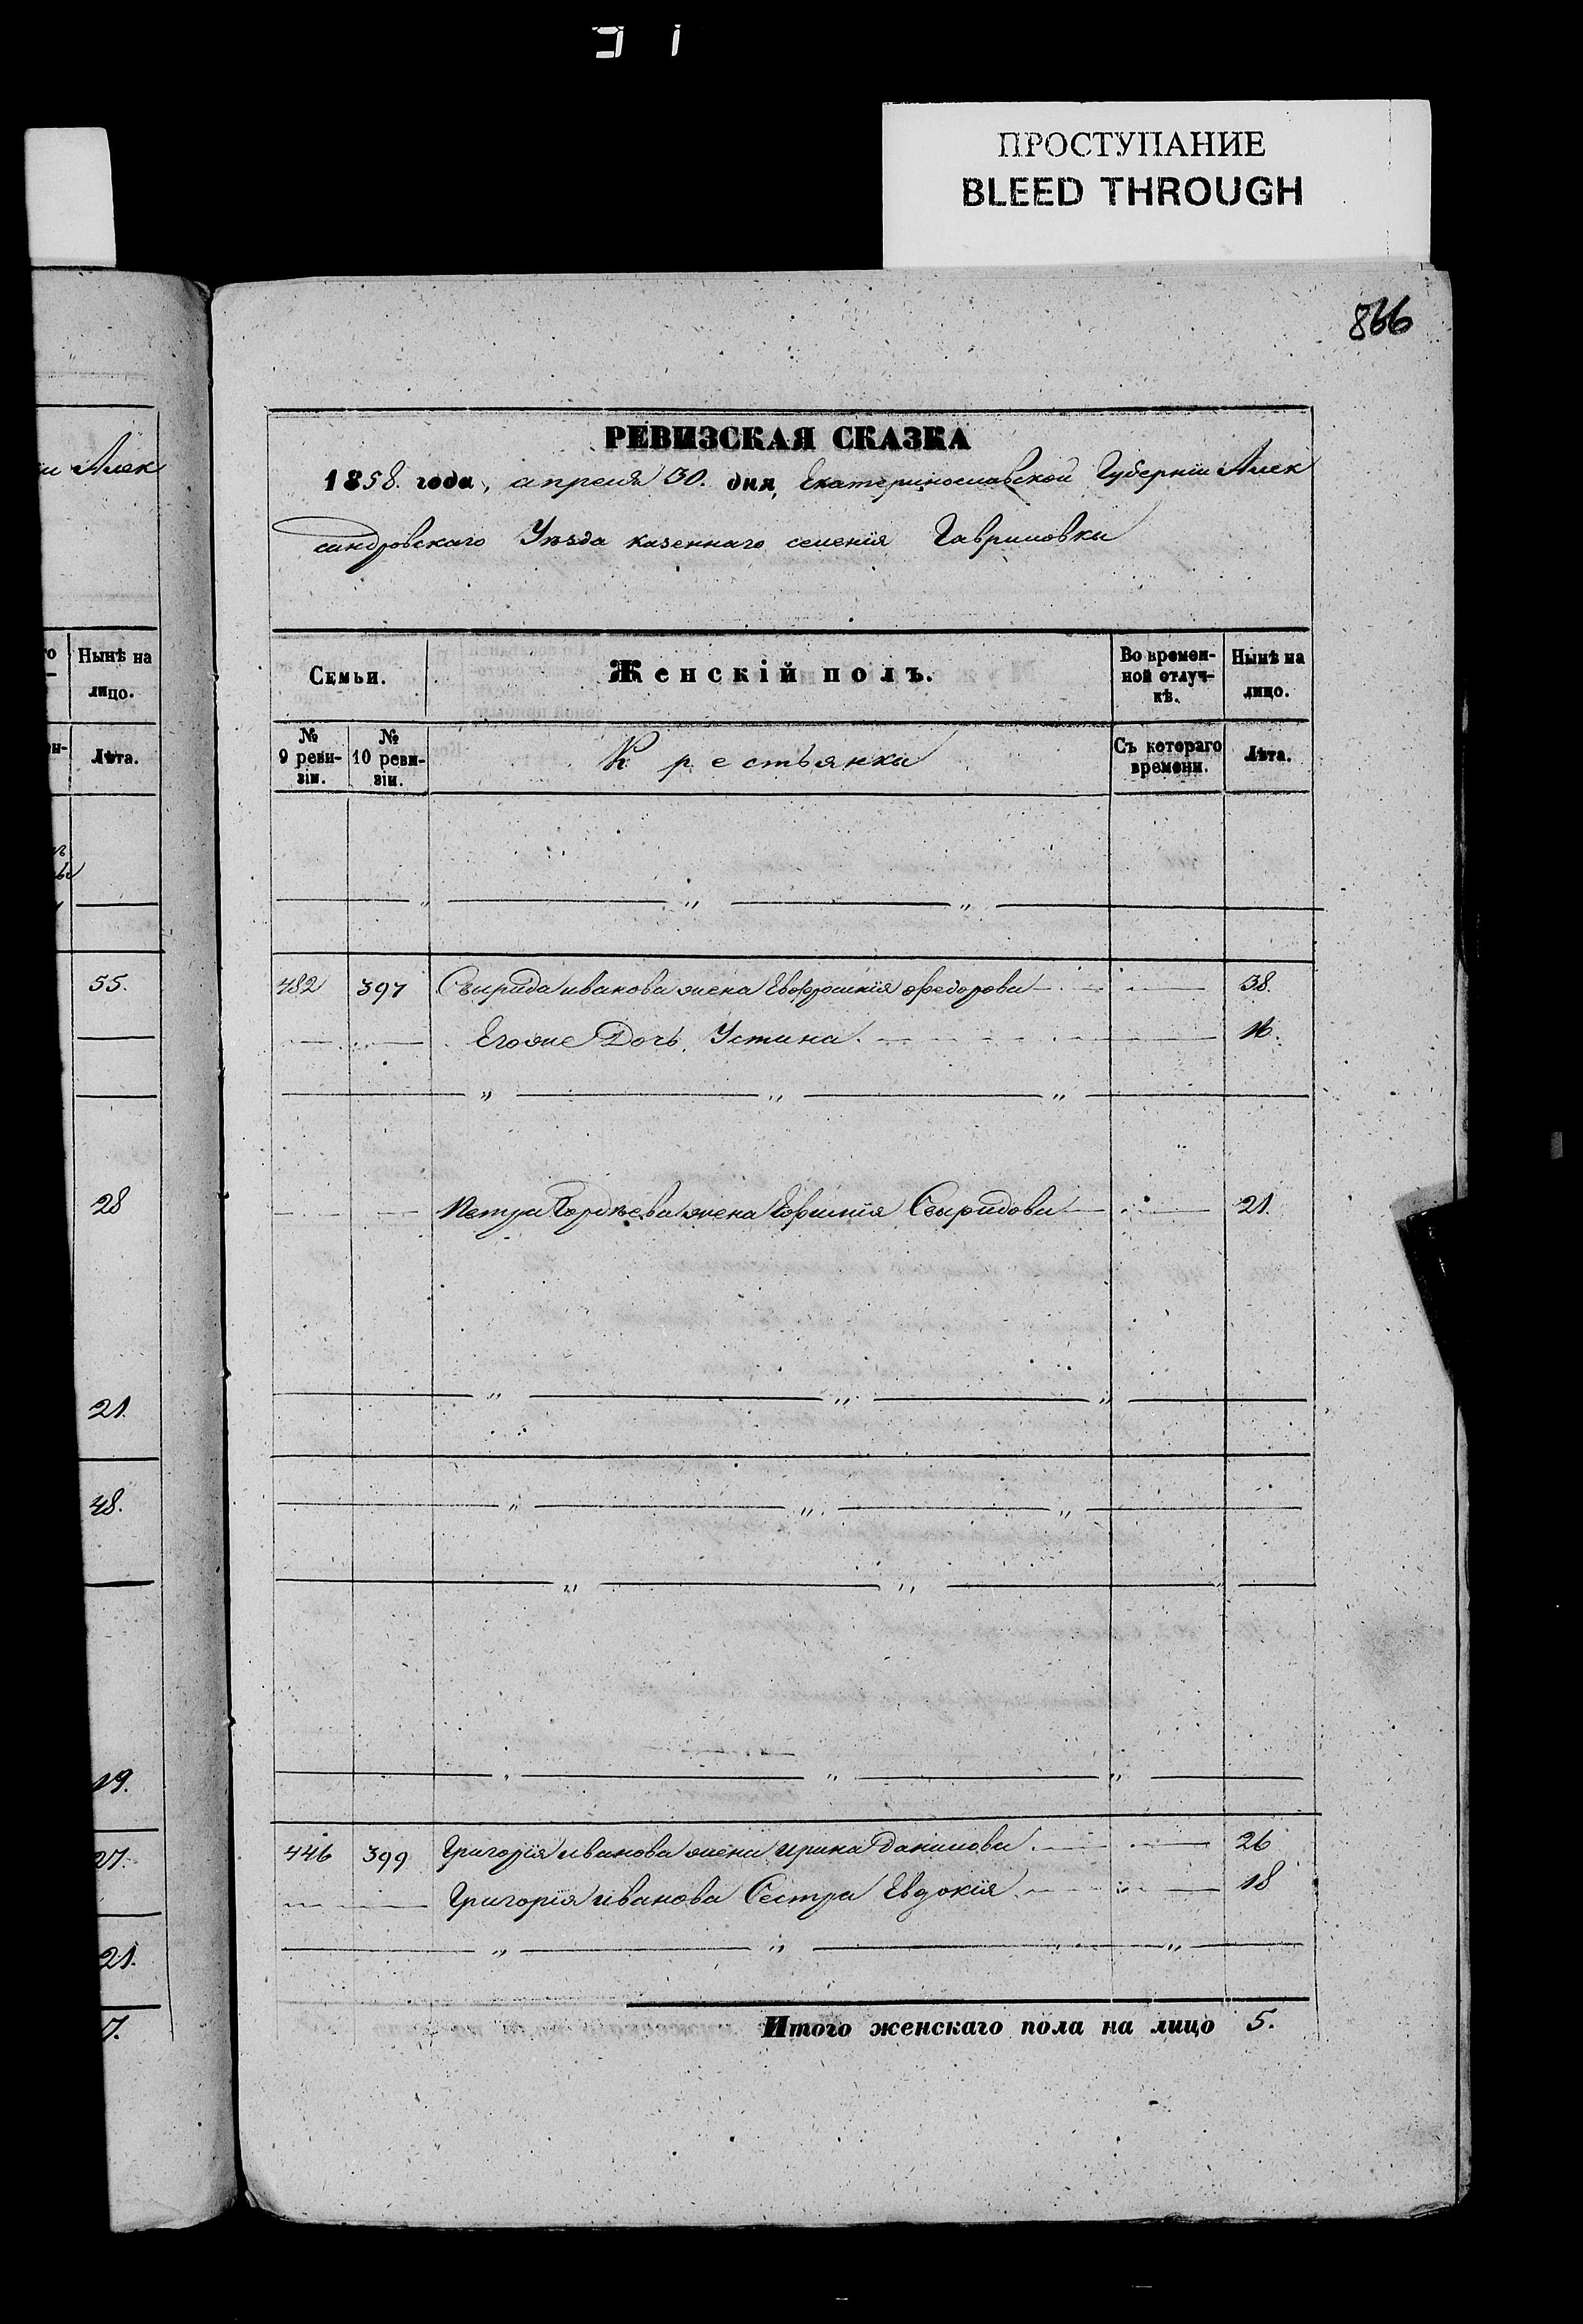 ПРОСТУПАНИЕ
BLEED THROUGH
866
РЕВИЗСКАЯ СКАЗКА
1858. года, апреля 30. дня, Екатеринославской Губерніи Алек
сандровскаго Уѣзда казеннаго селенія Гавриловки
Алек
Нынѣ на
лицо.
Лѣта.
55.
28
21.
48.
19.
27.
21.
7.
Семьи.
Женскій полъ.
Во времен-
ной отлуч-
кѣ.
Нынѣ на
лицо.
№
9 реви-
зіи.
№
10 реви-
зіи.
Крестьянки
Съ котораго
времени.
Лѣта.
482 397 Свирида иванова жена Евфросинія федорова 38.
Егоже Дочь Устина 16.
Петра Гордѣева жена Свиридова 21.
446 399 Григорія иванова жена ирина Данилова 26
Григорія иванова Сестра Евдокія 18
Итого женскаго пола на лицо 5.